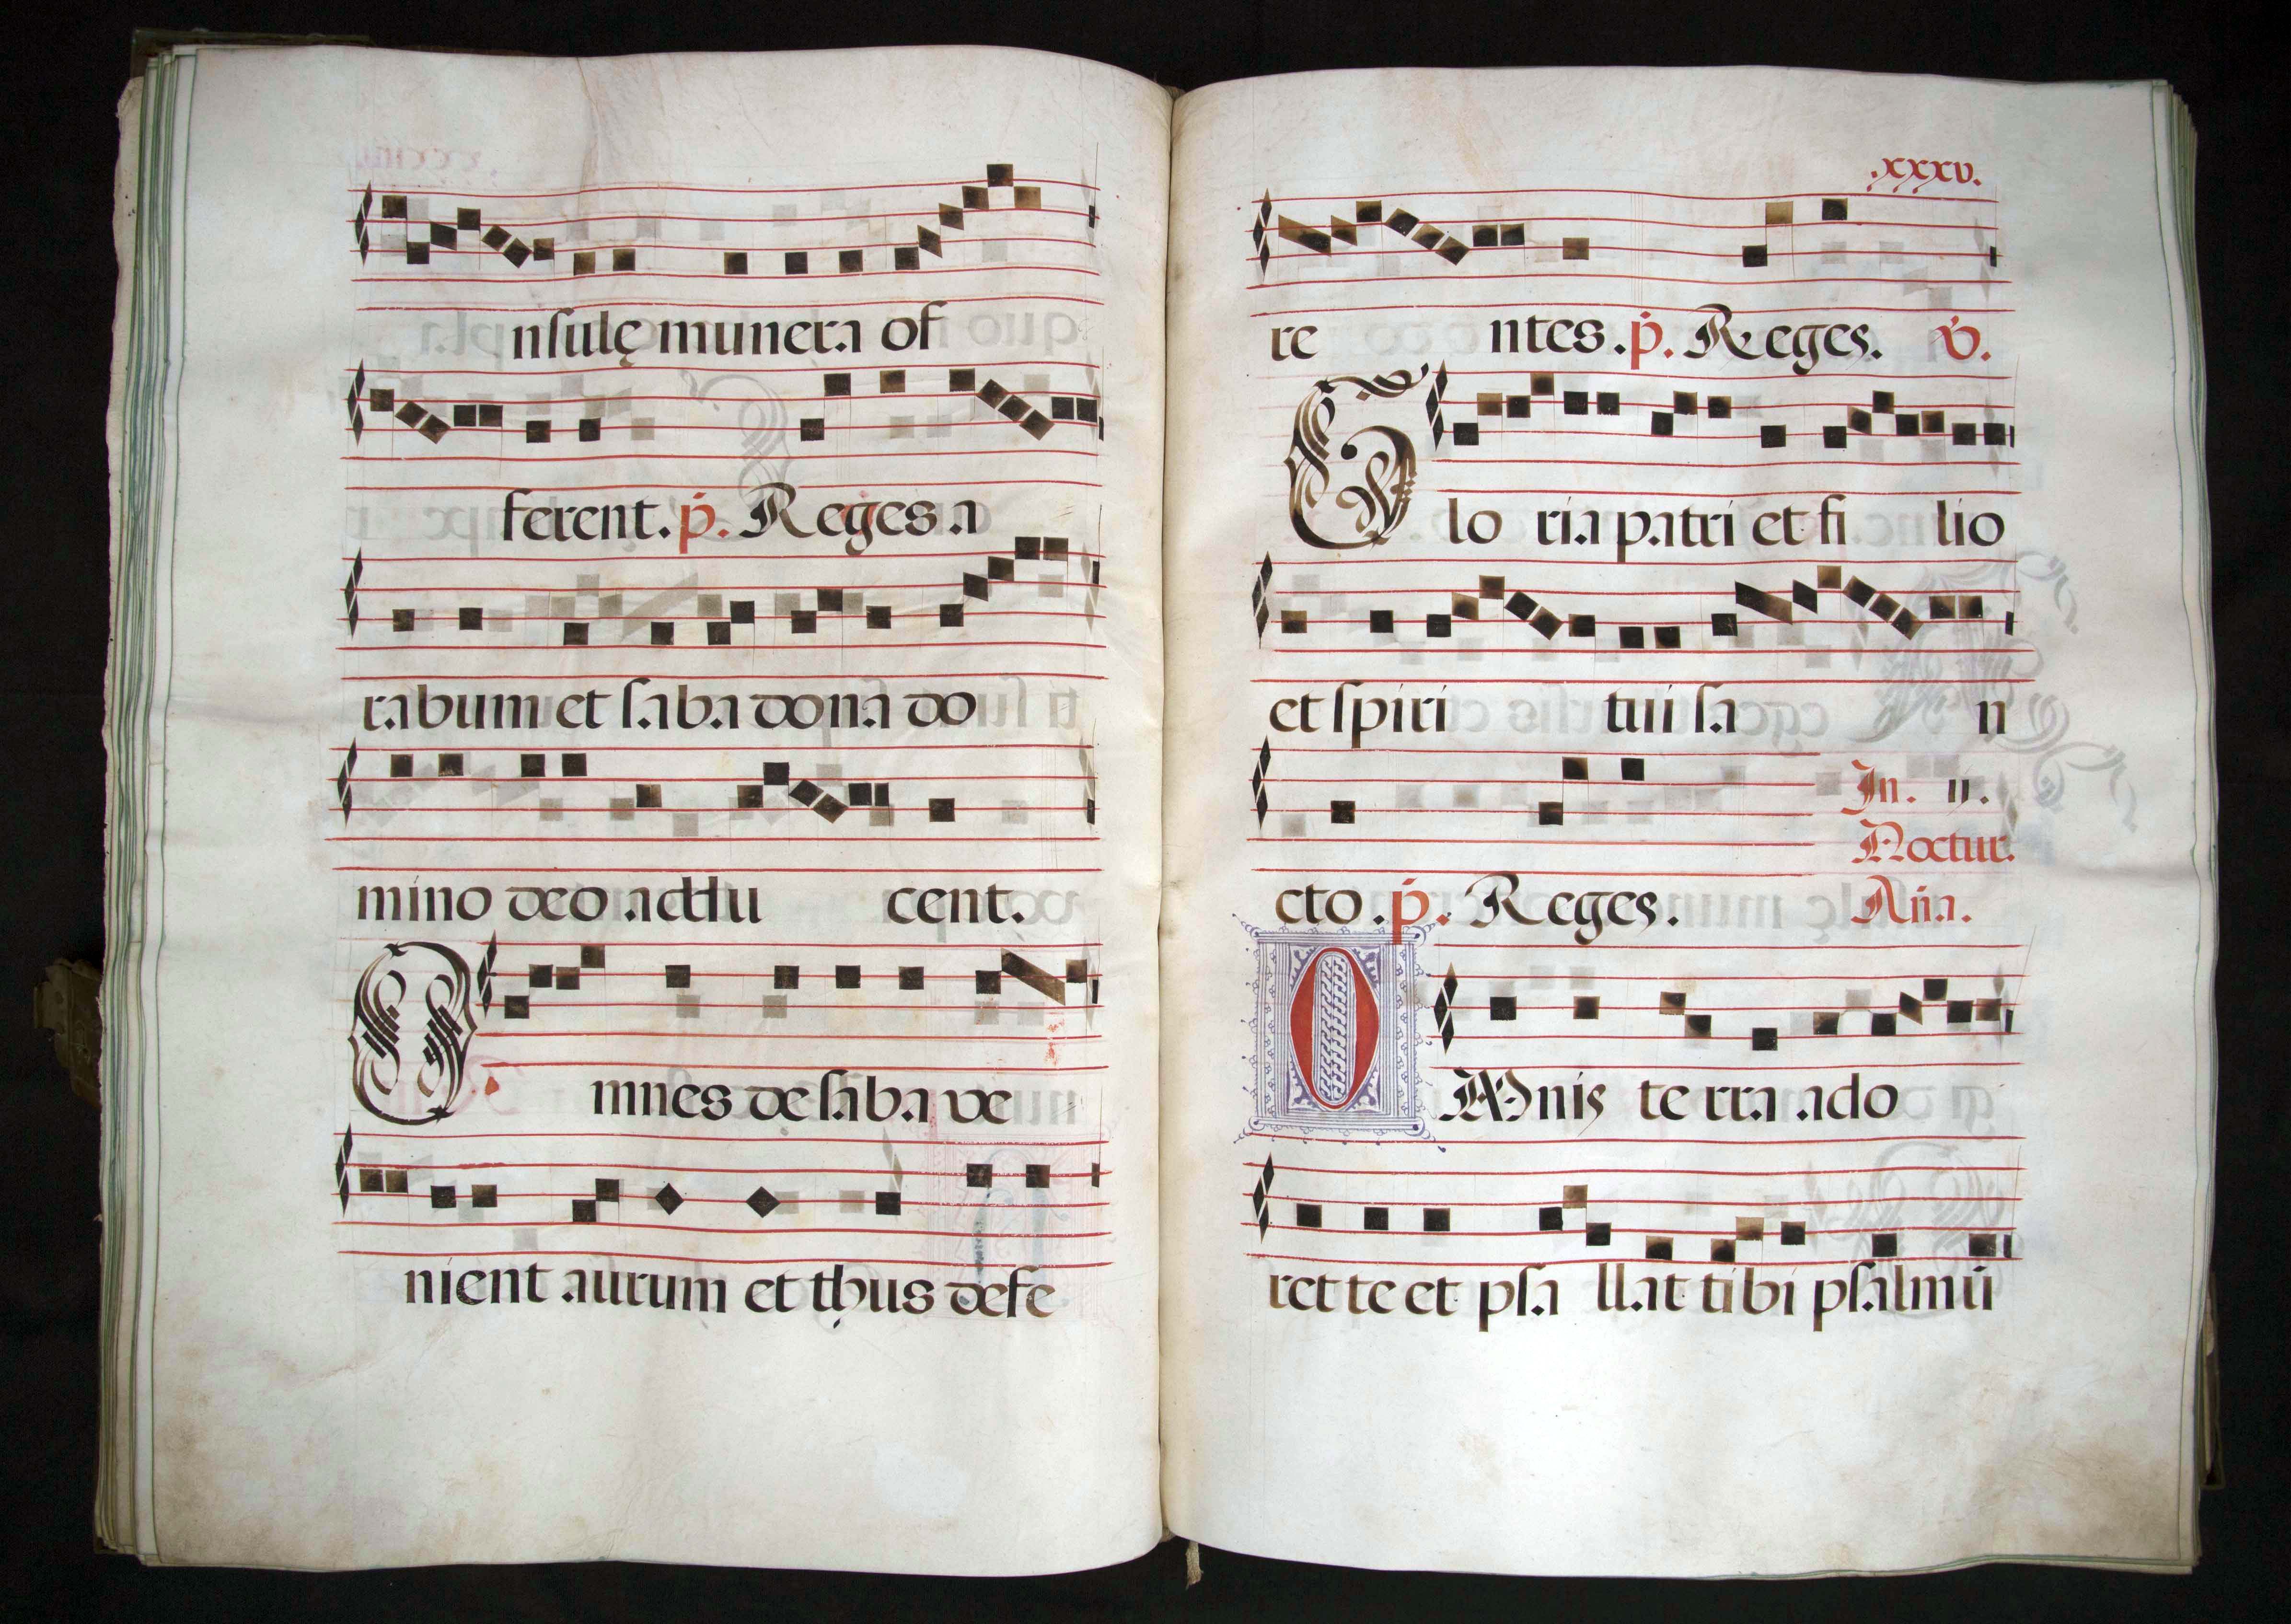 nsulę munera of
ferent. p. Reges a
rabum et saba dona do
mino deo addu cent.
Omnes de saba ve
nient aurum et thus defe
.xxxv.
re ntes. p. Reges. V.
Glo ria patri et fi lio
et spiri tui sa n
cto. p. Reges.
In. ii.
Noctur.
Aña.
OMnis te rra ado
ret te et psa llat tibi psalmū